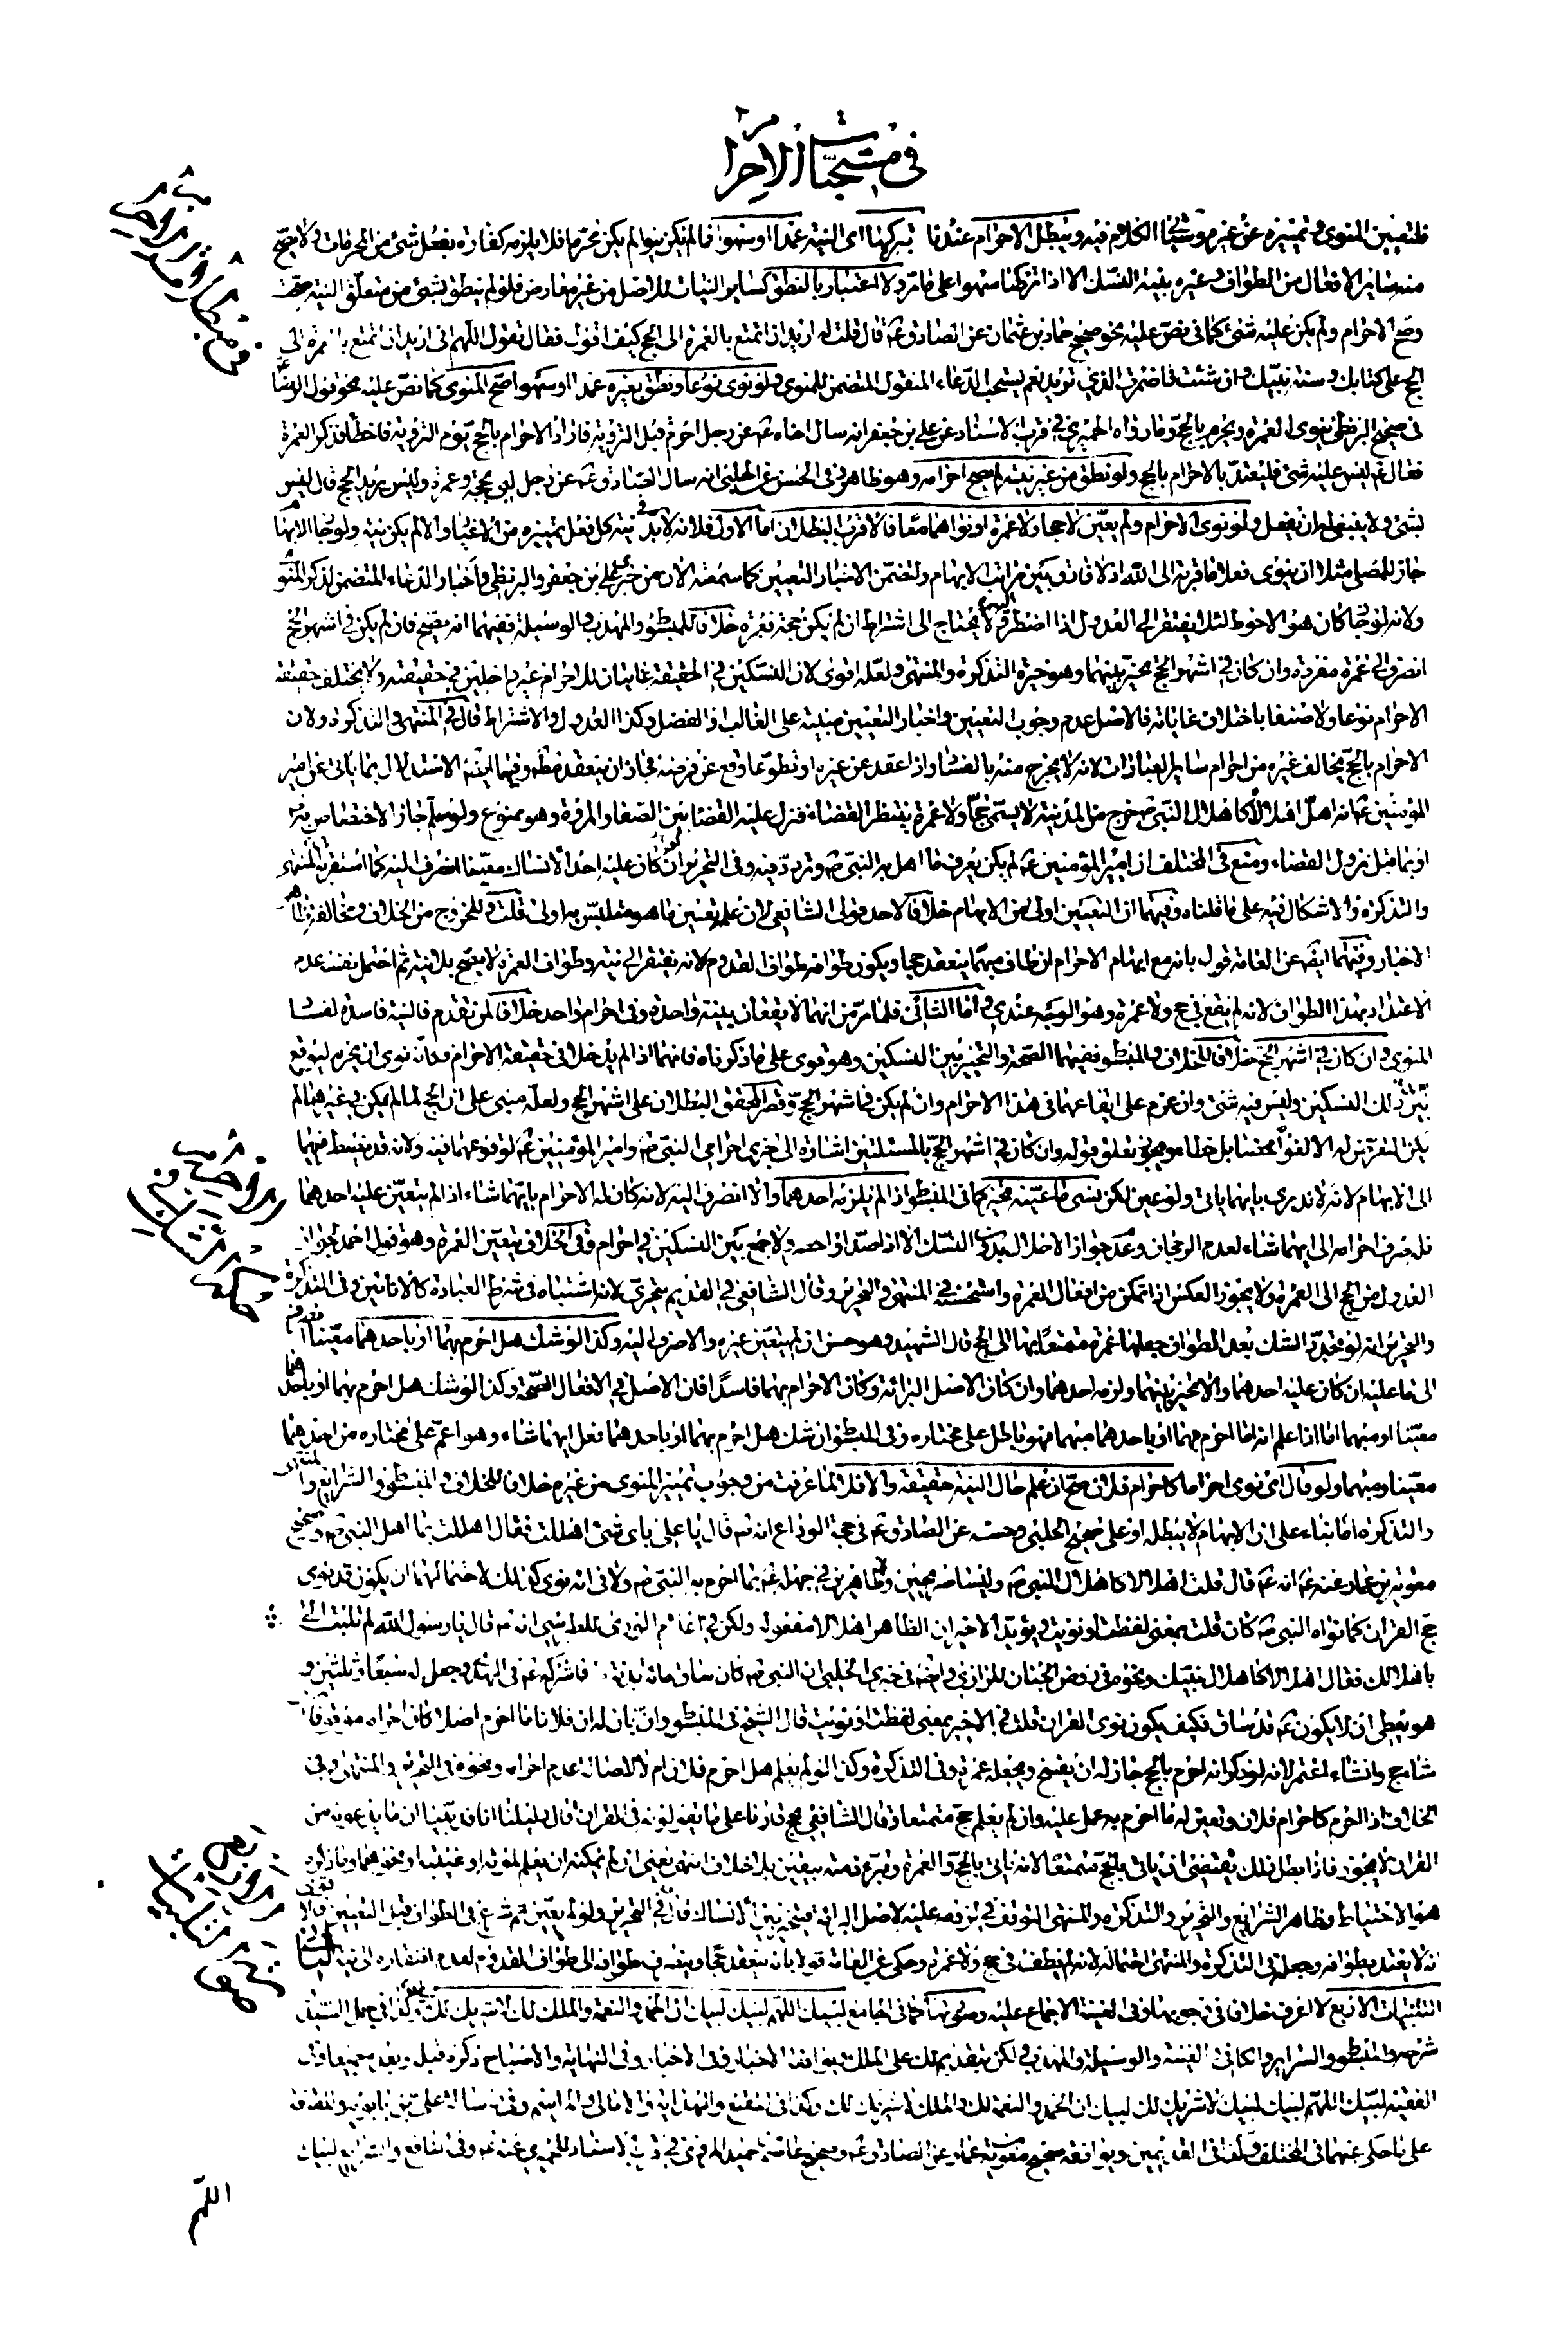 في مستحبات الاحرام
فلتعيين المنوي وتميزه عن غيره وسيجئ الكلام فيه ويبطل الاحرام عندنا بتركها اي النية عمدا او سهوا فما لم يكن ينو لم يكن محرما فلا يلزمه كفارة بفعل شئ من المحرمات ولا يصح
منه ساير الافعال من الطواف وغيره بنية النسك الا اذا تركها سهوا على ما مر ولا اعتبار بالنطق كساير النيات للاصل من غير معارض فلو لم ينطق بشئ من متعلق النية صحت
وصح الاحرام ولم يكن عليه شئ كما نص عليه نحو صحيح حماد بن عثمان عن الصادق ع قال قلت له اريد ان اتمتع بالعمرة الى الحج كيف اقول فقال تقول اللهم اني اريد ان اتمتع بالعمرة الى
الحج على كتابك وسنة نبيك وان شئت فاضمرت الذي تريد نعم يستحب الدعاء المنقول المتضمن للمنوي ولو نوى نوعا ونطق بغيره عمدا او سهوا صح المنوي كما نص عليه نحو قول الرضا ع
في صحيح البزنطي ينوي العمرة ويحرم بالحج وما رواه الحميري في قرب الاسناد عن علي بن جعفر انه سال اخاه ع عن رجل احرم قبل التروية فاراد الاحرام بالحج يوم التروية فاخطا فذكر العمرة
فقال ع ليس عليه شئ فليعتد بالاحرام بالحج ولو نطق من غير نية لم يصح احرامه وهو ظاهر وفي الحسن عن الحلبي انه سال الصادق ع عن رجل لبى بحجة وعمرة وليس يريد الحج قال ليس
بشئ ولا ينبغي له ان يفعل ولو نوى الاحرام ولم يعين لا حجا ولا عمرة او نواهما معا فالاقرب البطلان اما الاول فلانه لابد في نية كل فعل تميزه من الاغيار والا لم يكن نية ولو جاز الابهام
جاز للمصلي مثلا ان ينوي فعلا ما قربة الى الله اذ لا فارق بين مراتب الابهام ولتضمن الاخبار التعيين كما سمعته الان من خبري علي بن جعفر والبزنطي واخبار الدعاء المتضمن لذكر المنوي
ولانه لو جاز كان هو الاحوط لئلا يفتقر الى العدول اذا اضطر اليه ولا يحتاج الى اشتراط ان لم يكن حجة فعمرة خلافا للمبسوط والمهذب والوسيلة ففيها انه يصح فان لم يكن في اشهر الحج
انصرف الى عمرة مفردة وان كان في اشهر الحج تخير بينهما وهو خيرة التذكرة والمنتهى ولعله اقوى لان النسكين في الحقيقة غايتان للاحرام غير داخلين في حقيقته ولا يختلف حقيقة
الاحرام نوعا ولا صنفا باختلاف غاياته فالاصل عدم وجوب التعيين واخبار التعيين مبنية على الغالب او الفضل وكذا العدول والاشتراط قال في المنتهى والتذكرة ولان
الاحرام بالحج يخالف غيره من احرام ساير العبادات لانه لا يخرج منه بالفساد واذا عقد عن غيره او تطوعا وقع عن فرضه فجاز ان ينعقد مطلقا وفيهما ايضا الاستدلال بما ياتي عن امير
المؤمنين ع انه اهل اهلالا كاهلال النبي ص خرج من المدينة لا يسمي حجا ولا عمرة ينتظر القضاء فنزل عليه القضاء بين الصفا والمروة وهو ممنوع ولو سلم جاز الاختصاص به
او بما قبل نزول القضاء ومنع في المختلف ان امير المؤمنين ع لم يكن يعرف ما اهل به النبي ص وتردد فيه وفي التحرير لو كان عليه احد الانساك معينا انصرف اليه كما استقر به المنتهى
والتذكرة ولا اشكال فيه على ما قلناه وفيهما ان التعيين اولى من الابهام خلافا لاحد قولي الشافعي لان علم تعيين ما هو متلبس به اولى قلت وللخروج من الخلاف ومخالفة ظاهر
الاخبار وفيهما ايضا عن العامة قول بانه مع ابهام الاحرام ان طاف مبهما ينعقد حجا ويكون طوافه طواف القدوم لانه يفتقر الى نية وطواف العمرة لا يصح بلا نية ثم احتمل نفسه عدم
الاعتداد بهذا الطواف لانه لم يقع في حج ولا عمرة وهو الوجه عندي واما الثاني فلما مر من انهما لا يقعان بنية واحدة وفي احرام واحد خلافا لمن تقدم فالنية فاسدة لفساد
المنوي وان كان في اشهر الحج خلافا للخلاف والمبسوط ففيهما الصحة والتخيير بين النسكين وهو قوي على ما ذكرناه فانهما اذا لم يدخلا في حقيقة الاحرام فكانه نوى ان يحرم ليوقع
بعد ذلك النسكين وليس فيه شئ وان عزم على ايقاعهما في هذا الاحرام وان لم يكن في اشهر الحج وقصر المحقق البطلان على اشهر الحج ولعله مبني على ان الحج لما لم يمكن في غيرها لم
يكن التعرض له الا لغوا محضا بل خطاء ويجوز تعلق قوله وان كان في اشهر الحج بالمسئلتين اشارة الى خبري احرامي النبي ص وامير المؤمنين ع لوقوعهما فيه ولانه قد يبسط فيها
الى الابهام لانه لا ندري بايهما ياتي ولو عين لكن نسي ما عينه تخير كما في المبسوط اذا لم يلزمه احدهما والا انصرف اليه لانه كان له الاحرام بايهما شاء اذا لم يتعين عليه احدهما
فله صرف احرامه الى ايهما شاء لعدم الرجحان وعدم جواز الاحلال بدون النسك الا اذا صد او احصر ولا جمع بين النسكين في احرام وفي الخلاف يتعين العمرة وهو قول احمد لجواز
العدول من الحج الى العمرة ولا يجوز العكس اذا تمكن من افعال العمرة واستحسنه في المنتهى والتحرير وقال الشافعي في القديم يتحرى لانه اشتباه في شرط العبادة كالانائين وفي التذكرة
والتحرير انه لو تجدد الشك بعد الطواف جعلها عمرة متمتعا بها الى الحج قال الشهيد وهو حسن ان لم يتعين غيره والا صرف اليه وكذا لو شك هل احرم بهما او باحدهما معينا انصرف
الى ما عليه ان كان عليه احدهما والا تخير بينهما ولزمه احدهما وان كان الاصل البرائة وكان الاحرام بهما فاسدا فان الاصل في الافعال الصحة وكذا لو شك هل احرم بهما او باحدهما
معينا او مبهما اما اذا علم انه اما احرم بهما او باحدهما مبهما فهو باطل على مختاره وفي المبسوط ان شك هل احرم بهما او باحدهما فعل ايهما شاء وهو اعم على مختاره من احدهما
معينا ومبهما ولو قال اي نوى احراما كاحرام فلان صح ان علم حال النية حقيقته والا فلا لما عرفت من وجوب تميز المنوي من غيره خلافا للخلاف والمبسوط والشرايع والمنتهى
والتذكرة اما بناء على ان الابهام لا يبطله او على صحيح الحلبي وحسنه عن الصادق ع في حجة الوداع انه ص قال يا علي باي شئ اهللت فقال اهللت بما اهل النبي ص وصحيح
معوية بن عمار عنه ع انه ع قال قلت اهلالا كاهلال النبي ص وليسا صريحين ولا ظاهرين في جهله ع بما احرم به النبي ص ولا في انه نوى كذلك لاحتمالهما ان يكون قد نوى
حج القران كما نواه النبي ص كان قلت بمعنى لفظت او نويت ويؤيد الاخير ان الظاهر اهلالا مفعوله ولكن في اعلام الورى للطبرسي انه ع قال يا رسول الله لم تكتب الي
باهلالك فقلت اهلالا كاهلال نبيك ونحوه في روض الجنان للرازي وايضا في خبري الحلبي ان النبي ص كان ساق مائة بدنة فاشركه ع في الهدي وجعل له سبعا وثلثين و
هو يعطي ان لا يكون ع قد ساق فكيف يكون نوى القران قلت في الاخير بمعنى لفظت او نويت قال الشيخ في المبسوط وان بان له ان فلانا ما احرم اصلا كان احرامه موقوفا ان
شاء حج وان شاء اعتمر لانه لو ذكر انه احرم بالحج جاز له ان يفسخ ويجعله عمرة وفي التذكرة وكذا لو لم يعلم هل احرم فلان ام لا لاصالة عدم احرامه ونحوه في التحرير والمنتهى وفي
الخلاف اذا احرم كاحرام فلان وتعين له ما احرم به عمل عليه وان لم يعلم حج متمتعا وقال الشافعي يحج قارنا على ما يقولونه في القران قال دليلنا انا قد بينا ان ما يدعونه من
القران لا يجوز فاذا بطل ذلك يقتضي ان ياتي بالحج متمتعا لانه ياتي بالحج والعمرة وتبرء ذمته بيقين بلا خلاف انتهى يعني ان لم يمكنه ان يعلم لموته او غيبته او نحوهما وما ذكره
هو الاحتياط وظاهر الشرايع والتحرير والتذكرة والمنتهى التوقف في لزومه عليه لاصل البراءة فيتخير بين الانساك قال في التحرير ولو لم يعين ثم شرع في الطواف قبل التعيين فالاقرب
انه لا يعتد بطوافه وجعله في التذكرة والمنتهى احتمالا لانه لم يطف في حج ولا عمرة وحكى عن العامة قولا بانه ينعقد حجا وينصرف طوافه الى طواف القدوم لعدم افتقاره الى نية الثالث
التلبيات الاربع لا اعرف خلافا في وجوبها وفي الغنية الاجماع عليه وصورتها كما في الجامع لبيك اللهم لبيك لبيك ان الحمد والنعمة والملك لك لا شريك لك لبيك وكذا في جمل السيد
شرحه والمبسوط والسراير والكافي والغنية والوسيلة والمهذب لكن بتقديم لك على الملك ويوافقه الاخبار وفي النهاية والاصباح ذكره قبله وبعده جميعا وفي
الفقيه لبيك اللهم لبيك لبيك لا شريك لك لبيك ان الحمد والنعمة لك والملك لا شريك لك وكذا في المقنع والهداية والامالي والمراسم وفي رسالة علي بن بابويه والمقنعة
على ما حكى عنهما في المختلف وكذا في القديمين ويوافقه صحيح معوية بن عمار عن الصادق ع وصحيح عاصم بن حميد المروي في قرب الاسناد للحميري عنه ع وفي النافع والشرايع لبيك
اللهم